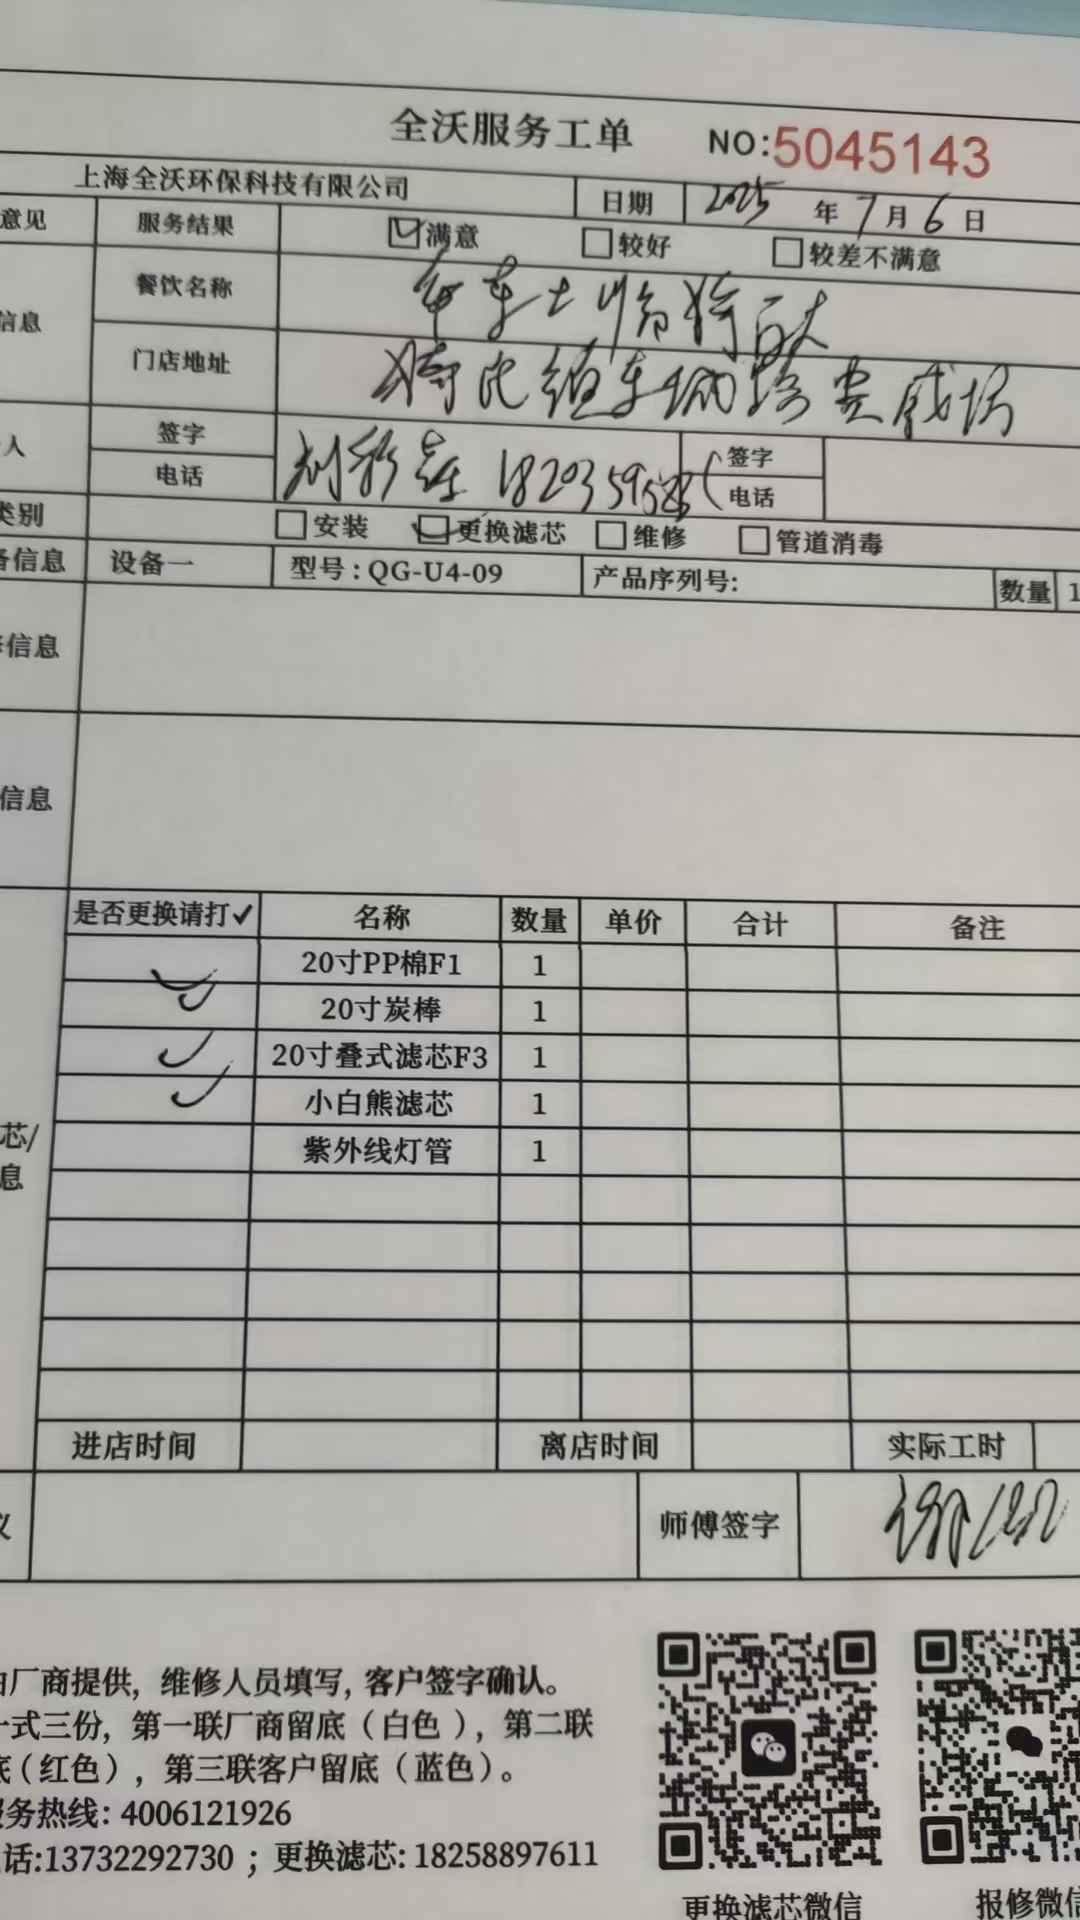 全沃服务工单 NO:5045143
上海全沃环保科技有限公司 日期 2025年7月6日
意见 服务结果 满意 较好 较差不满意
信息 餐饮名称
门店地址
人 签字 签字
电话 电话
类别 安装 更换滤芯 维修 管道消毒
备信息 设备一 型号:QG-U4-09 产品序列号: 数量 1
信息
信息
是否更换请打✓ 名称 数量 单价 合计 备注
20寸PP棉F1 1
20寸炭棒 1
20寸叠式滤芯F3 1
小白熊滤芯 1
紫外线灯管 1
芯/
息
进店时间 离店时间 实际工时
议 师傅签字
由厂商提供, 维修人员填写, 客户签字确认。
一式三份, 第一联厂商留底（白色）, 第二联
底(红色）, 第三联客户留底（蓝色)。
服务热线: 4006121926
话:13732292730 ; 更换滤芯: 18258897611
更换滤芯微信 报修微信